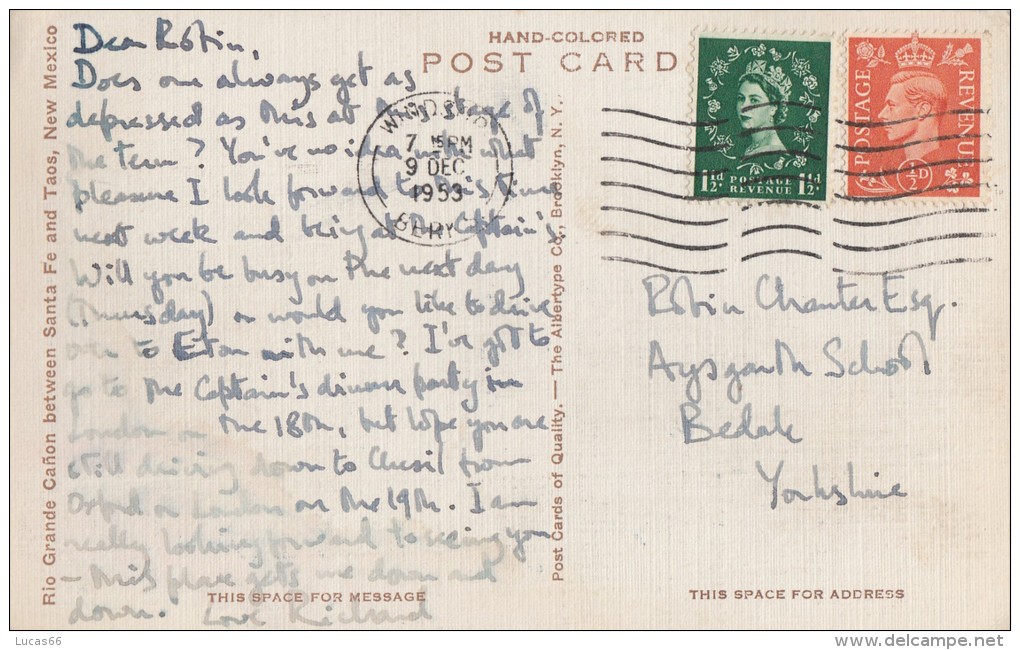 Rio Grande Cañon between Santa Fe and Taos, New Mexico
Dear Robin,
Does one always get as
depressed as this at this stage of
the term? You've no idea with what
pleasure I look forward to this time
next week and being at the Captain's.
Will you be busy on the next day
(Thursday) or would you like to drive
over to Eton with me? I've got to
go to the Captain's dinner party in
London on the 18th, but hope you are
still driving down to Chesil from
Oxford or London on the 19th. I am
really looking forward to seeing you
– this place gets me down and
down. Love Richard
THIS SPACE FOR MESSAGE
Post Cards of Quality. — The Albertype Co., Brooklyn, N. Y.
HAND-COLORED
POST CARD
WINDSOR
7 15 PM
9 DEC
1953
1½D POSTAGE REVENUE 1½D
POSTAGE REVENUE
½D
Robin Chanter Esq.
Aysgarth School
Bedale
Yorkshire
THIS SPACE FOR ADDRESS
Lucas66
delcampe.net